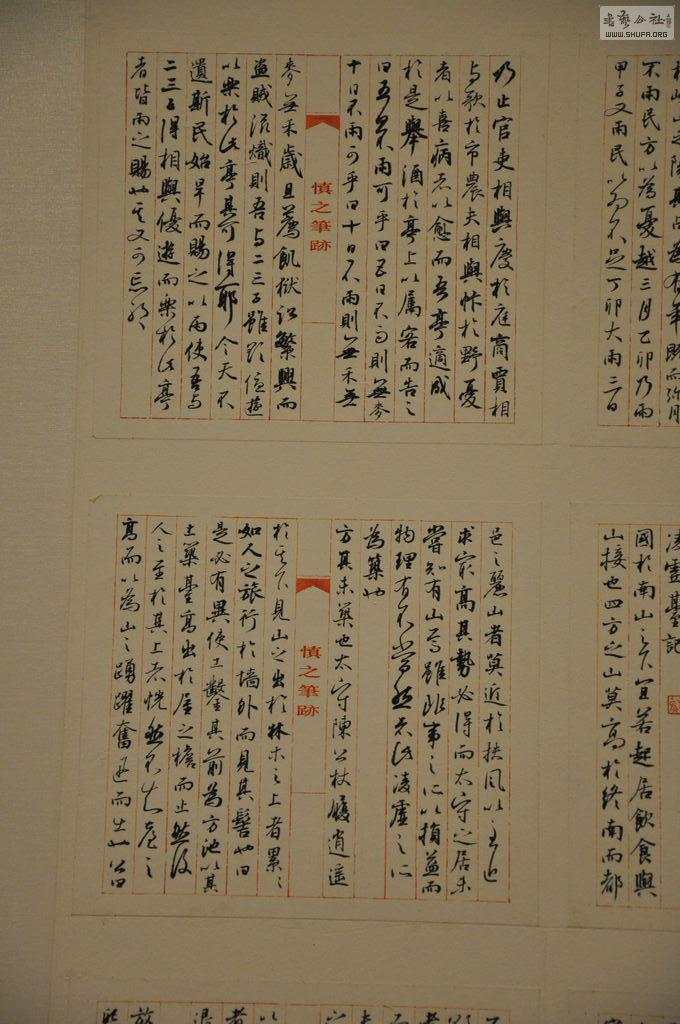 書法公社
WWW.SHUFA.ORG
不雨民方以為憂越三月乙卯乃雨
甲子又雨民以為不足丁卯大雨三日
乃止官吏相與慶於庭商賈相
與歌於市農夫相與忭於野憂
者以喜病者以愈而吾亭適成
於是舉酒於亭上以屬客而告之
曰五日不雨可乎曰五日不雨則無麥
十日不雨可乎曰十日不雨則無禾無
慎之筆跡
麥無禾歲且薦飢獄訟繁興而
盜賊滋熾則吾與二三子雖欲優遊
以樂於此亭其可得耶今天不
遺斯民始旱而賜之以雨使吾與
二三子得相與優遊而樂於此亭
者皆雨之賜也其又可忘耶
凌虛臺記
國於南山之下宜若起居飲食與
山接也四方之山莫高於終南而都
邑之麗山者莫近於扶風以至近
求最高其勢必得而太守之居未
嘗知有山焉雖非事之所以損益而
物理有不當然者此凌虛之所
為築也
方其未築也太守陳公杖屨逍遙
慎之筆跡
於其下見山之出於林木之上者累々
如人之旅行於墻外而見其髻也曰
是必有異使工鑿其前為方池以其
土築臺高出於屋之檐而止然後
人之至於其上者恍然不知臺之
高而以為山之踴躍奮迅而出也公曰